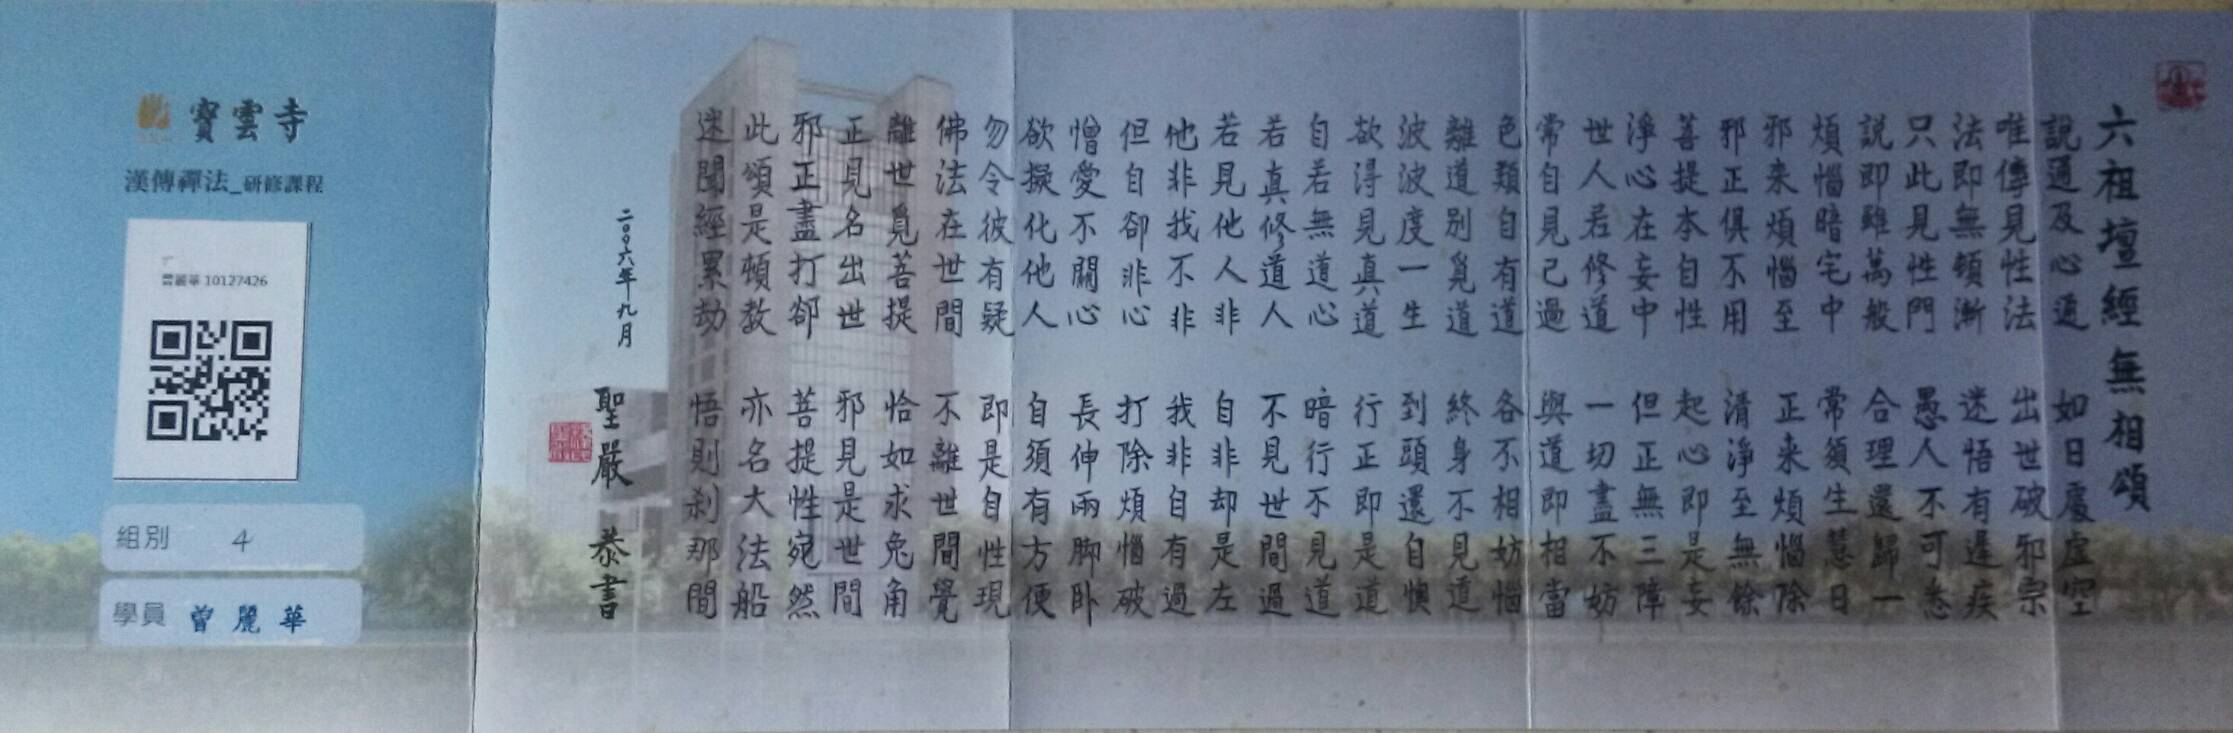 六祖壇經無相頌
說通及心通 如日處虛空
唯傳見性法 出世破邪宗
法即無頓漸 迷悟有遲疾
只此見性門 愚人不可悉
說即雖萬般 合理還歸一
煩惱暗宅中 常須生慧日
邪来煩惱至 正来煩惱除
邪正俱不用 清淨至無餘
菩提本自性 起心即是妄
淨心在妄中 但正無三障
世人若修道 一切盡不妨
常自見己過 與道即相當
色類自有道 各不相妨惱
離道別覓道 終身不見道
波波度一生 到頭還自懊
欲得見真道 行正即是道
自若無道心 暗行不見道
若真修道人 不見世間過
若見他人非 自非却是左
他非我不非 我非自有過
但自卻非心 打除煩惱破
憎愛不關心 長伸兩脚卧
欲擬化他人 自須有方便
勿令彼有疑 即是自性現
佛法在世間 不離世間覺
離世覓菩提 恰如求兔角
正見名出世 邪見是世間
邪正盡打郤 菩提性宛然
此頌是頓教 亦名大法船
迷聞經累劫 悟則刹那間
二〇〇六年九月 聖嚴 恭書
寶雲寺
漢傳禪法_研修課程
曾麗華 10127426
組別 4
學員 曾麗華